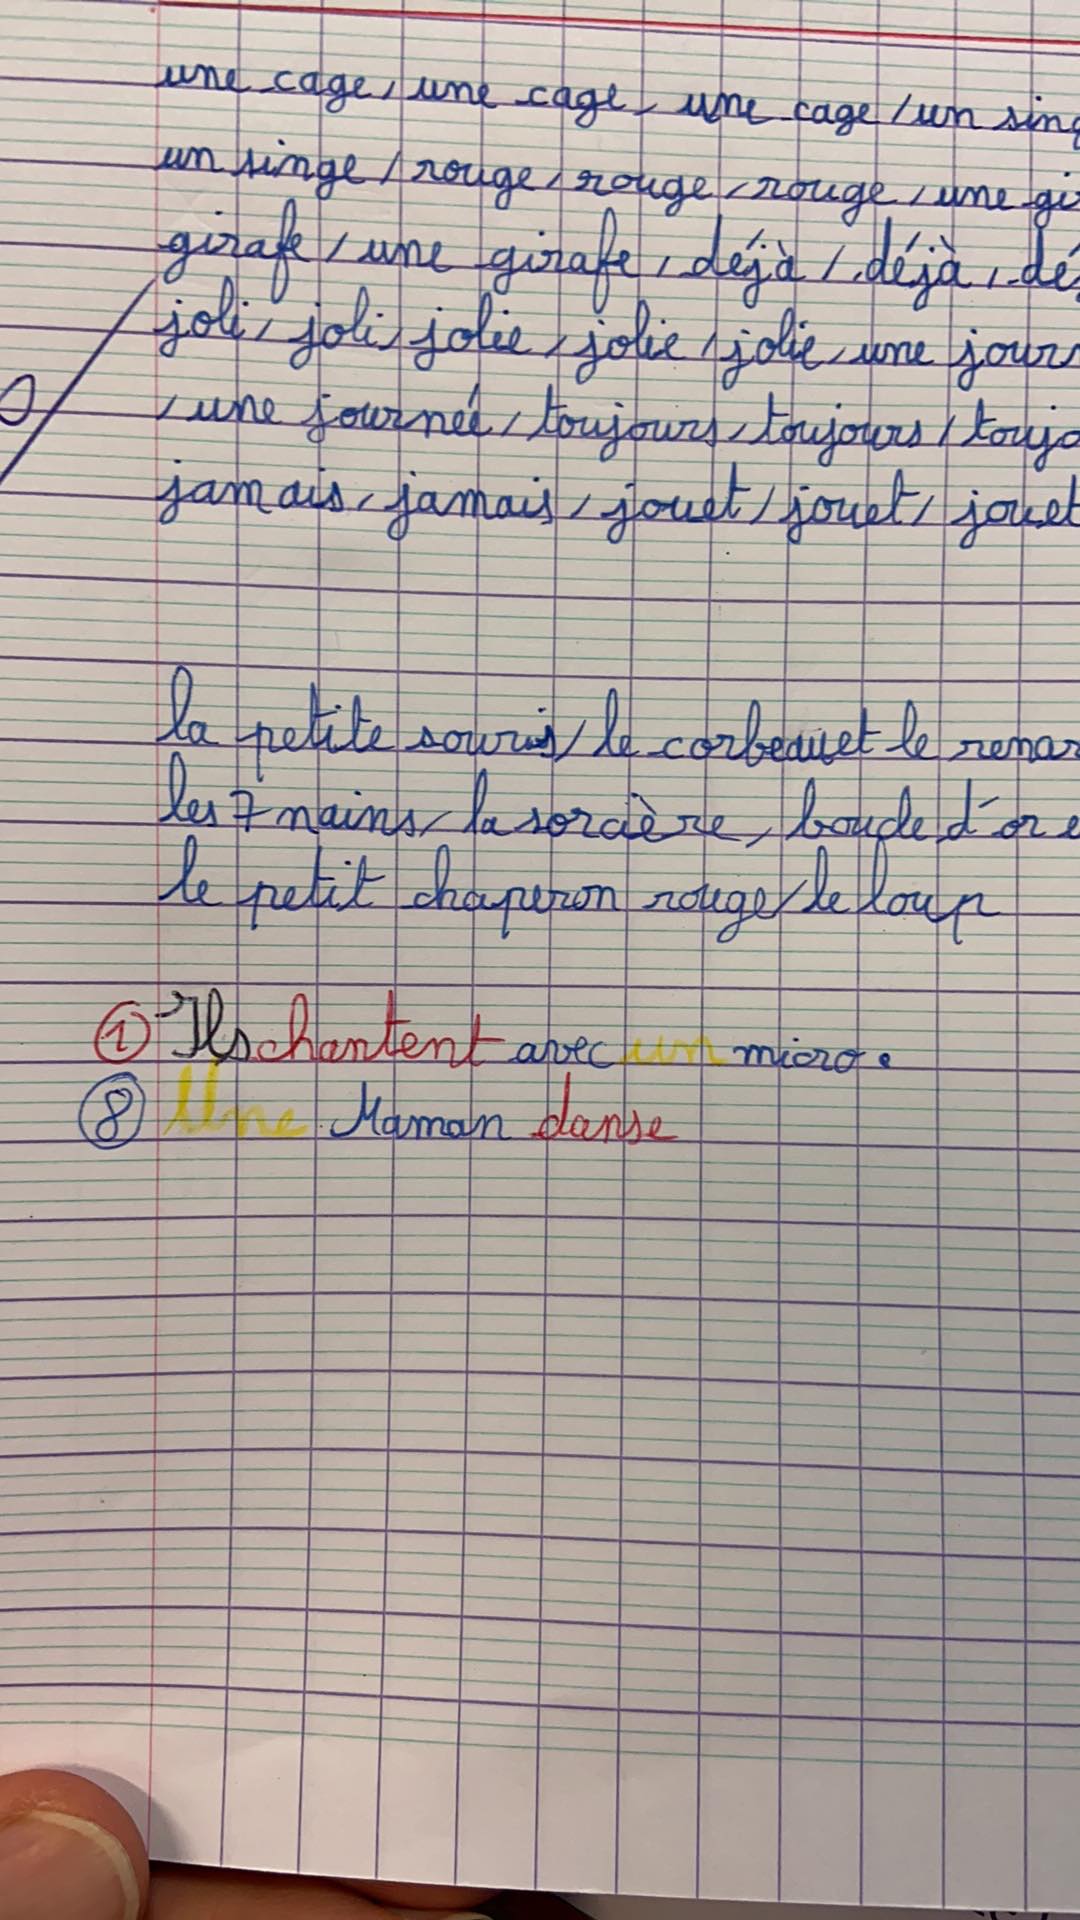 une cage, une cage, une cage, un sing
un singe, rouge, rouge, rouge, une gi
girafe, une girafe, déjà, déjà, dé
joli, joli, jolie, jolie, jolie, une journ
, une journeé, toujours, toujours, toujo
jamais, jamais, jouet, jouet, jouet
la petite souris, le corbeau et le renar
les 7 nains, la sorcière, boucle d'or e
le petit chaperon rouge, le loup
① Ils chantent avec un micro.
⑧ Une Maman danse